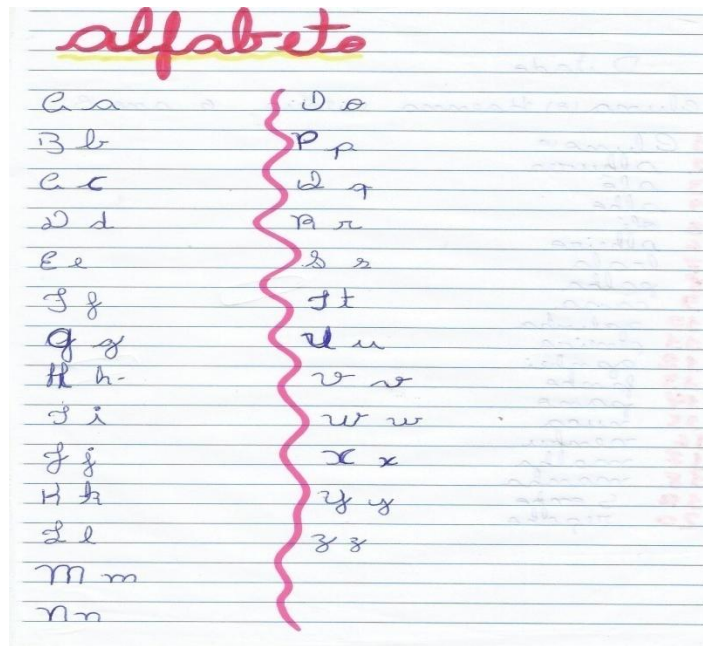 alfabeto
A a
B b
C c
D d
E e
F f
G g
H h
I i
J j
K k
L l
M m
N n
O o
P p
Q q
R r
S s
T t
U u
V v
W w
X x
Y y
Z z